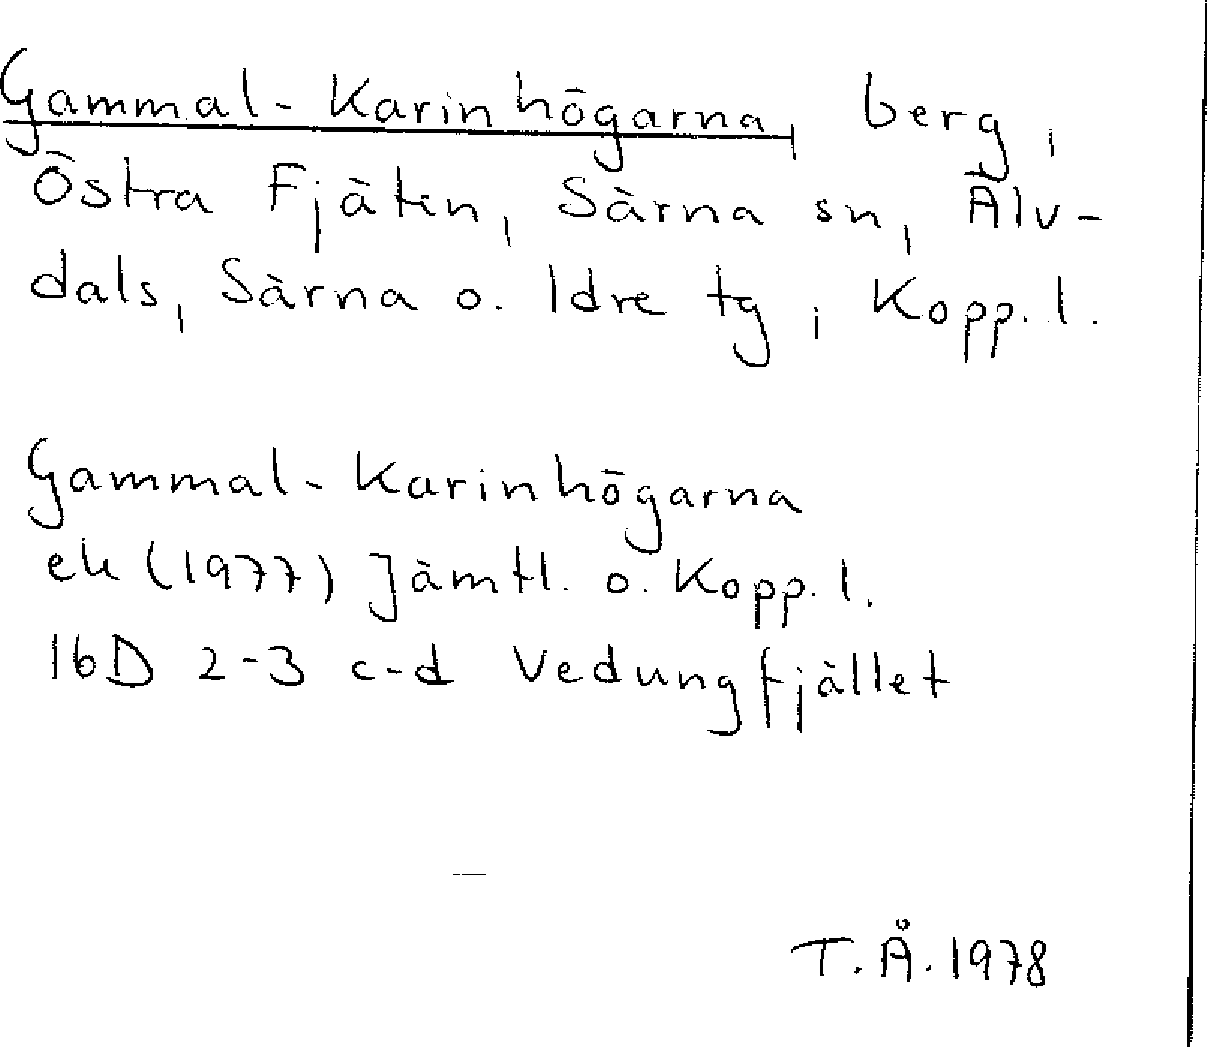 Gammal-Karinhögarna, berg,
Östra Fjäten, Särna sn, Älv-
dals, Särna o. Idre tg, Kopp. l.
Gammal-Karinhögarna
ek (1977) Jämtl. o. Kopp. l.
16D 2-3 c-d Vedungfjället
T.Å. 1978